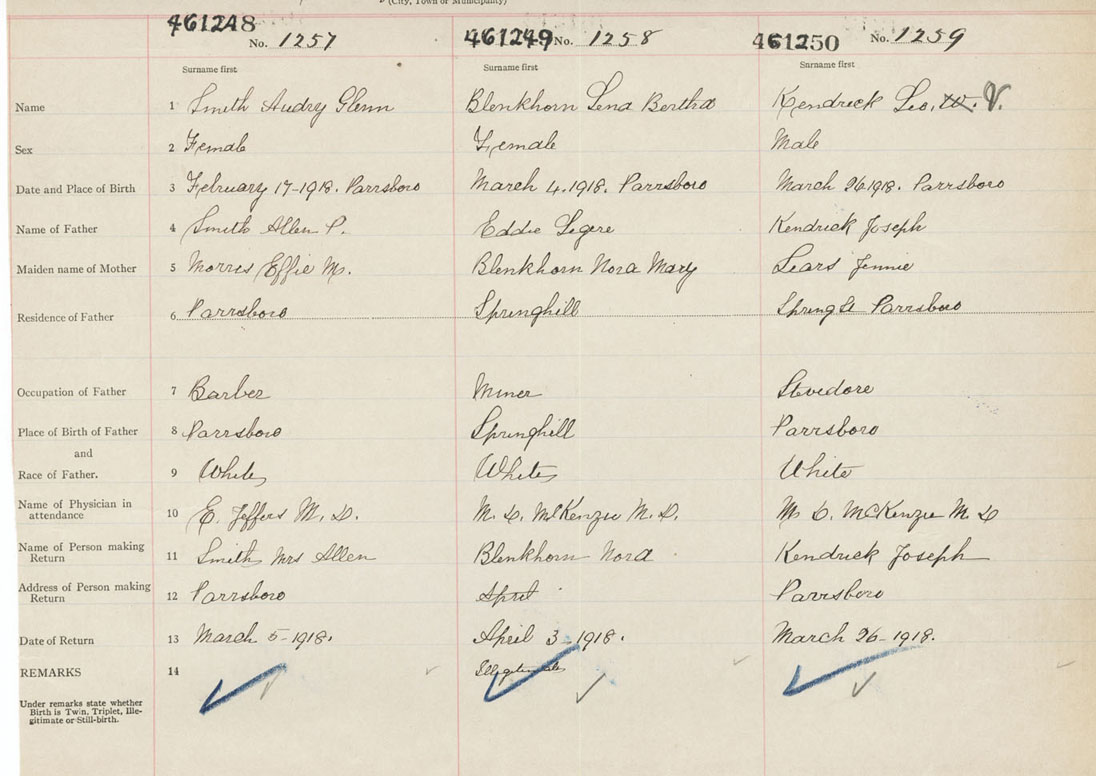 (City, Town or Municipality)
461248 461249 461250
No. 1257 No. 1258 No. 1259
Surname first Surname first Surname first
Name 1 Smith Audry Glenn Blenkhorn Lena Bertha Kendrick Leo. W. V.
Sex 2 Female Female Male
Date and Place of Birth 3 February 17-1918. Parrsboro March 4.1918. Parrsboro March 26 1918. Parrsboro
Name of Father 4 Smith Allen P. Eddie Legere Kendrick Joseph
Maiden name of Mother 5 Morris Effie M. Blenkhorn Nora Mary Sears Jennie
Residence of Father 6 Parrsboro Springhill Spring St Parrsboro
Occupation of Father 7 Barber Miner Stevedore
Place of Birth of Father 8 Parrsboro Springhill Parrsboro
and
Race of Father. 9 White White White
Name of Physician in
attendance 10 E. Jeffers M. D. M. D. McKenzie M. D. M. D. McKenzie M D
Name of Person making
Return 11 Smith Mrs Allen Blenkhorn Nora Kendrick Joseph
Address of Person making
Return 12 Parrsboro April Parrsboro
Date of Return 13 March 5-1918. April 3-1918. March 26-1918.
REMARKS 14 Illegitimate
Under remarks state whether
Birth is Twin, Triplet, Ille-
gitimate or Still-birth.